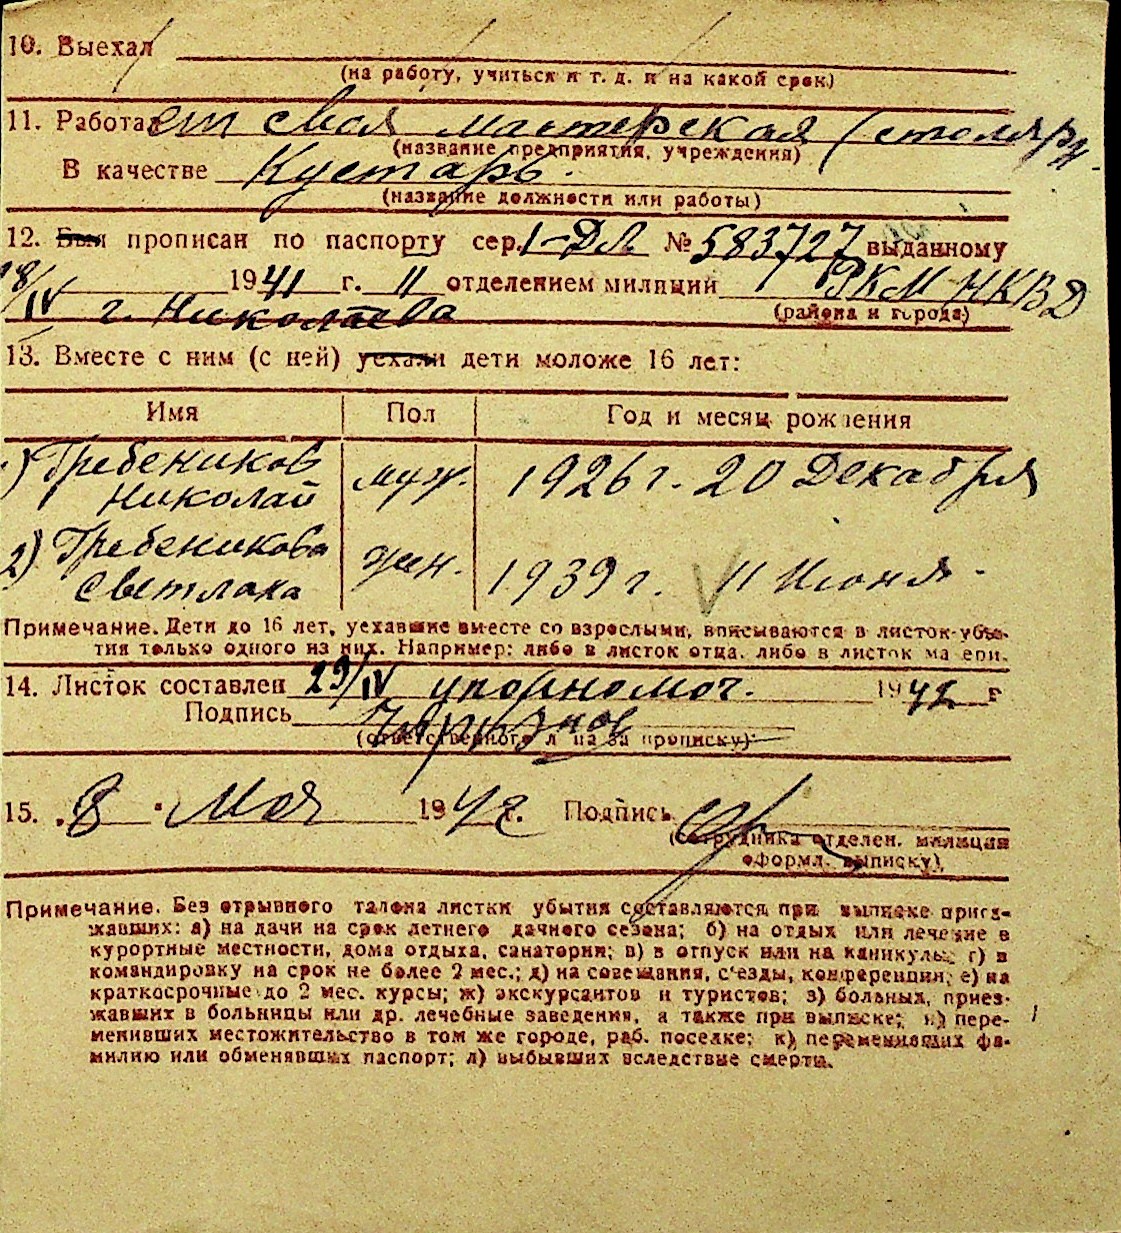 10. Выехал
(на работу, учиться и т. д. и на какой срок)
11. Работает своя мастерская (столярн.
(название предприятия, учреждения)
В качестве Кустарь.
(название должности или работы)
12. Был прописан по паспорту сер. I-ДЛ № 583727 выданному
18/IV 1941 г. II отделением милиции РКМ НКВД
г. Николаева (района и города)
13. Вместе с ним (с ней) уехали дети моложе 16 лет:
Имя Пол Год и месяц рождения
1) Гребеников муж. 1926 г. 20 Декабря
Николай
2) Гребеникова жен. 1939 г. 11 Июня.
Светлана
Примечание. Дети до 16 лет, уехавшие вместе со взрослыми, вписываются в листок убы-
тия только одного из них. Например: либо в листок отца, либо в листок матери.
14. Листок составлен 29/IV уполномоч. 1942 г
Подпись
(ответственного лица за прописку)
15. „8" Мая 1942 г. Подпись
(сотрудника отделен. милиции
оформл. выписку)
Примечание. Без отрывного талона листки убытия составляются при выписке приез-
жавших: а) на дачи на срок летнего дачного сезона; б) на отдых или лечение в
курортные местности, дома отдыха, санатории; в) в отпуск или на каникулы; г) в
командировку на срок не более 2 мес.; д) на совещания, с'езды, конференции; е) на
краткосрочные до 2 мес. курсы; ж) экскурсантов и туристов; з) больных, приез-
жавших в больницы или др. лечебные заведения, а также при выписке; и) пере-
менивших местожительство в том же городе, раб. поселке; к) переменивших фа-
милию или обменявших паспорт; л) выбывших вследствие смерти.